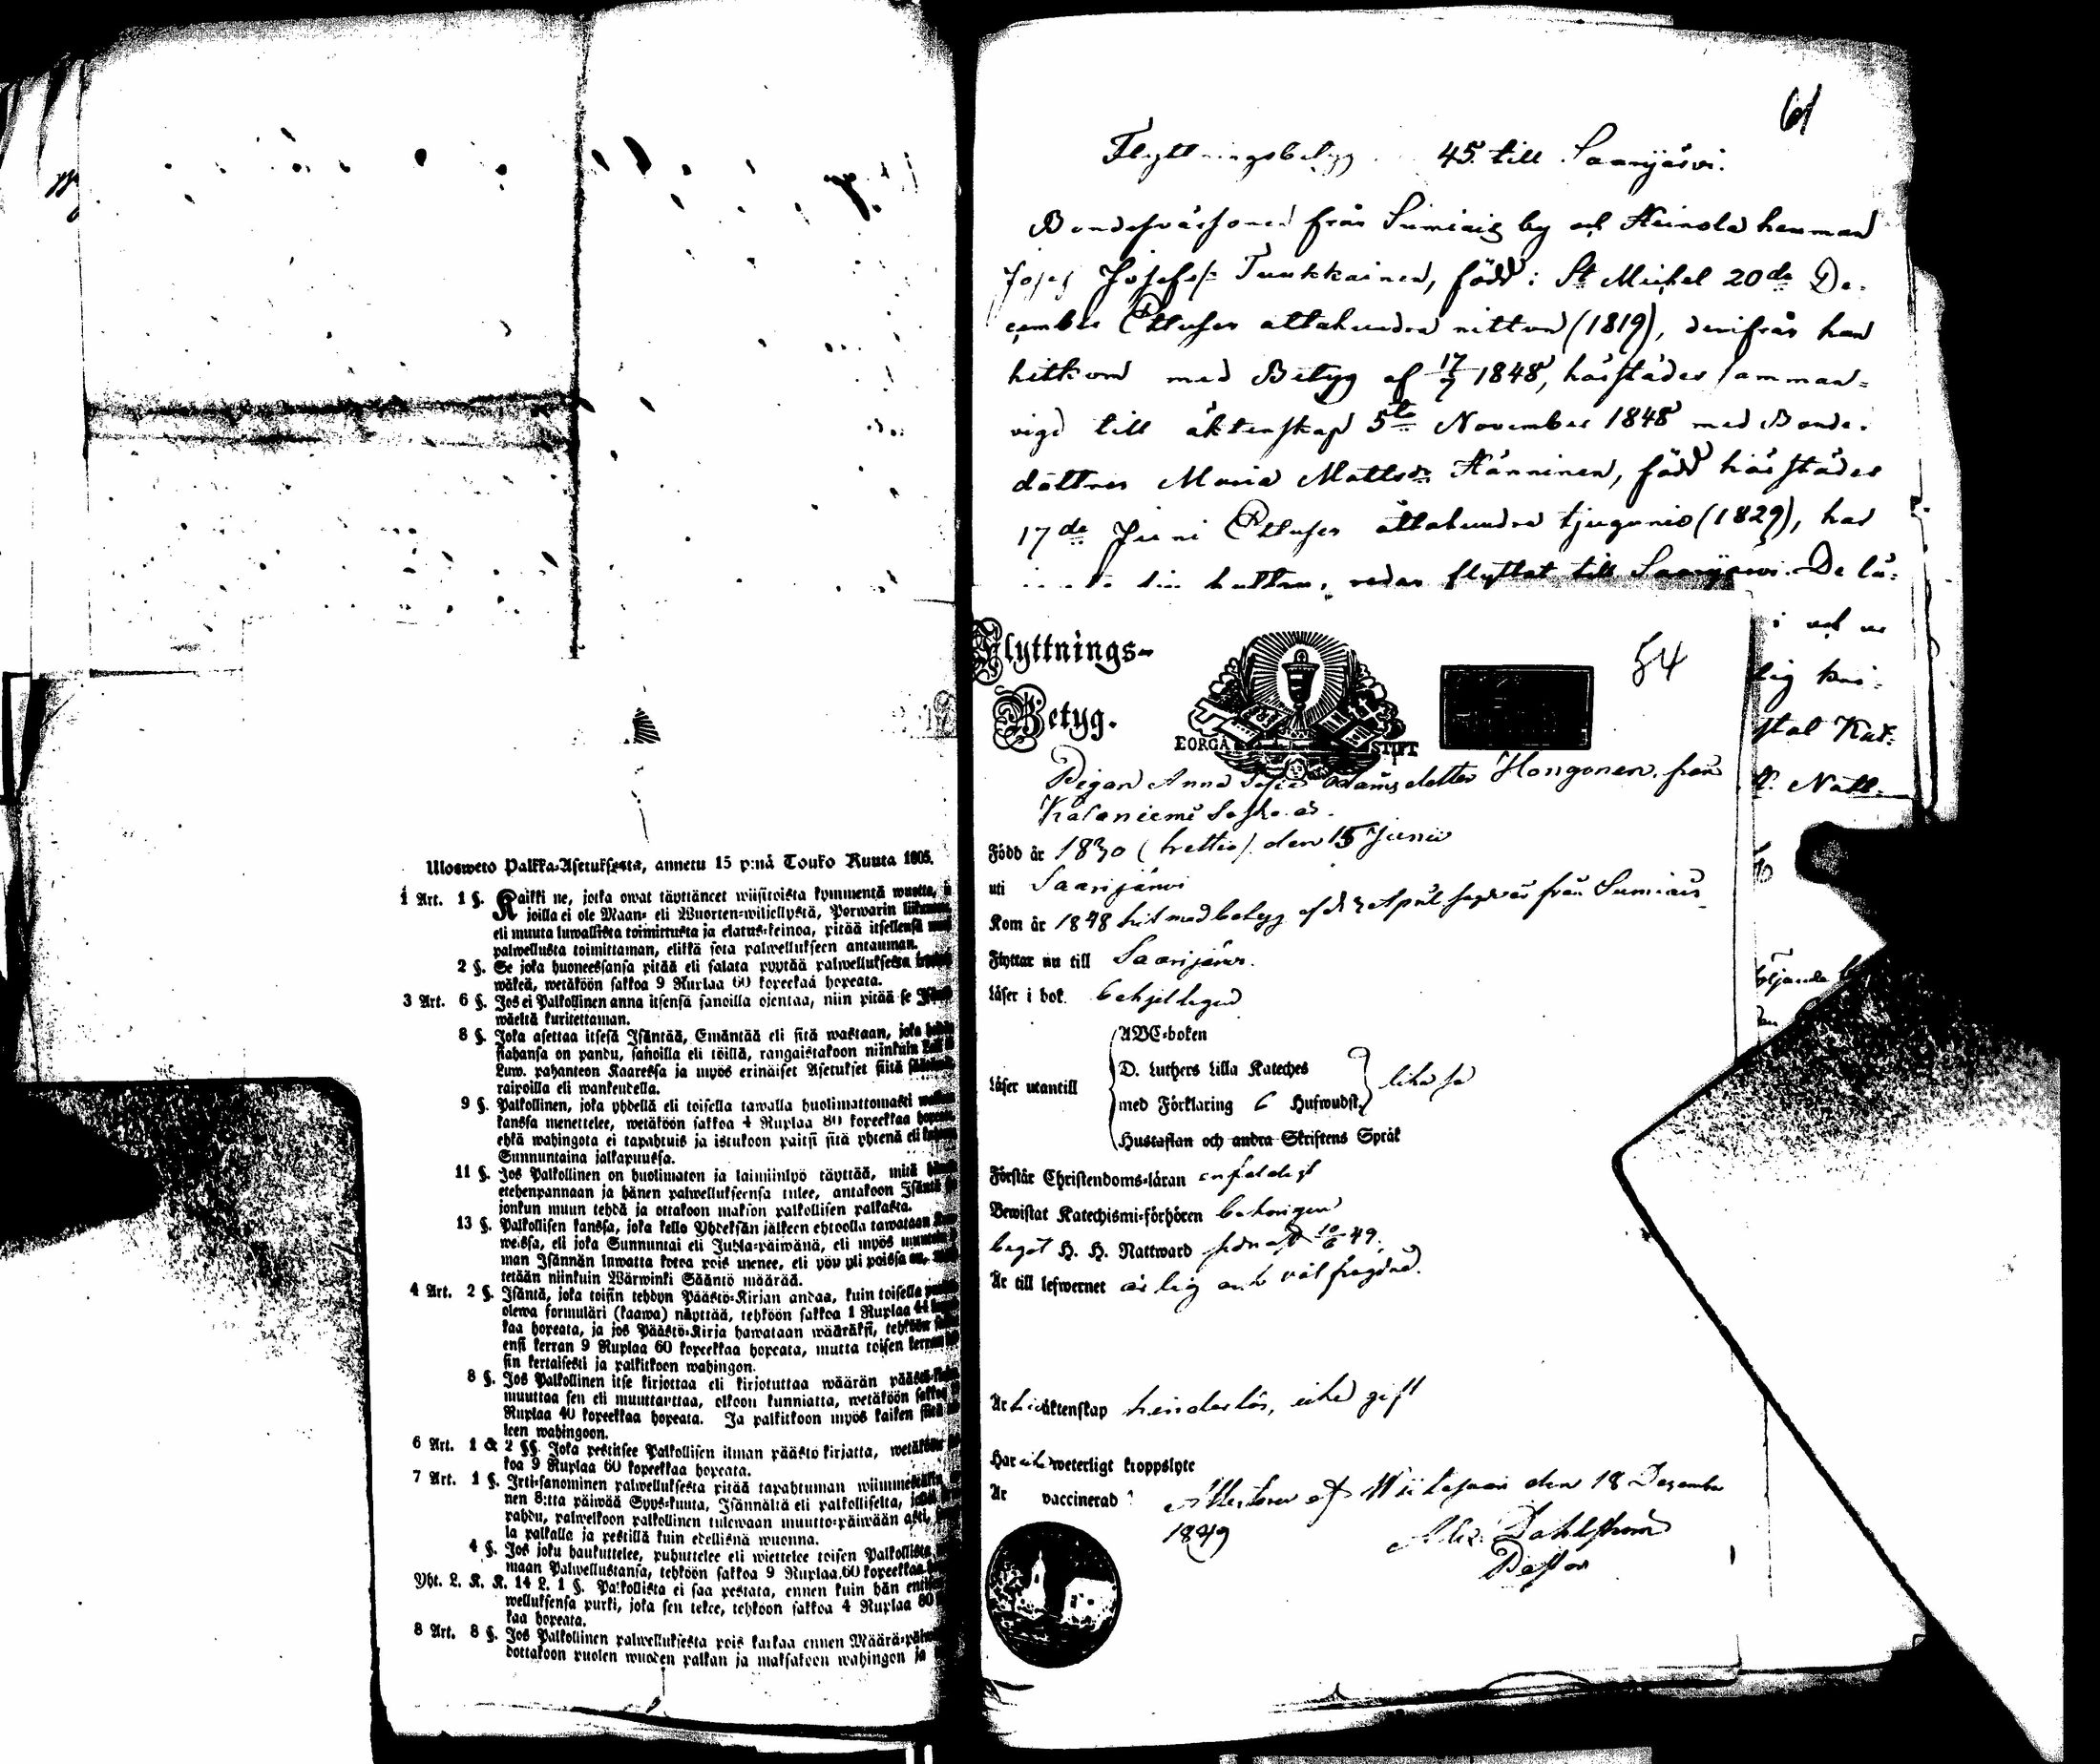 Ulosweto Palkka-Asetuksesta, annetu 15 p:nä Touko Kuuta 1805.
1 Art. 1 §. Kaikki ne, jotka owat täyttäneet wiisitoista kymmentä wuotta,
joilla ei ole Maan- eli Wuorten-wiljellystä, Porwarin
eli muuta luwallista toimitusta ja elatus-keinoa, pitää itsellensä
palwellusta toimittaman, elikkä sota palwellukseen antauman.
2 §. Se joka huoneessansa pitää eli salata pyytää palwelluksesta
wäkeä, wetäköön sakkoa 9 Ruplaa 60 kopeekaa hopeata.
3 Art. 6 §. Jos ei Palkollinen anna itsensä sanoilla ojentaa, niin pitää se
wäeltä kuritettaman.
8 §. Joka asettaa itsesä Isäntää, Emäntää eli sitä wastaan, joka
siahansa on pandu, sanoilla eli töillä, rangaistakoon niinkuin
Luw. pahanteon Kaaressa ja myös erinäiset Asetukset siitä
raipoilla eli wankeudella.
9 §. Palkollinen, joka yhdellä eli toisella tawalla huolimattomasti
kanssa menettelee, wetäköön sakkoa 4 Ruplaa 80 kopeekkaa
ehkä wahingota ei tapahtuis ja istukoon paitsi sitä yhtenä eli
Sunnuntaina jalkapuussa.
11 §. Jos Palkollinen on huolimaton ja laiminlyö täyttää, mitä
etehenpannaan ja hänen palwelluksensa tulee, antakoon Isäntä
jonkun muun tehdä ja ottakoon makson palkollisen palkasta.
13 §. Palkollisen kanssa, joka kello Yhdeksän jälkeen ehtoolla tawataan
weissa, eli joka Sunnuntai eli Juhla-päiwänä, eli myös
man Isännän luwatta kotoa pois menee, eli yön yli poissa on,
tetään niinkuin Wärwinki Sääntö määrää.
4 Art. 2 §. Isäntä, joka toisin tehdyn Päästö-Kirjan andaa, kuin toisella
olewa formuläri (kaawa) näyttää, tehköön sakkoa 1 Ruplaa 44
kaa hopeata, ja jos Päästö-Kirja hawataan wääräksi, tehköön
ensi kerran 9 Ruplaa 60 kopeekkaa hopeata, mutta toisen kerran
sin kertaisesti ja palkitkoon wahingon.
8 §. Jos Palkollinen itse kirjottaa eli kirjotuttaa wäärän
muuttaa sen eli muuttanttaa, olkoon kunniatta, wetäköön sakkoa
Ruplaa 40 kopeekkaa hopeata. Ja palkitkoon myös kaiken siitä
leen wahingoon.
6 Art. 1 & 2 §§. Joka pestitsee Palkollisen ilman päästö kirjatta, wetäköön
koa 9 Ruplaa 60 kopeekkaa hopeata.
7 Art. 1 §. Irti-sanominen palwelluksesta pitää tapahtuman
nen 8:tta päiwää Syys-kuuta, Isännältä eli palkolliselta,
pahdu, palwelkoon palkollinen tulewaan muutto-päiwään asti,
la palkalla ja pestillä kuin edellisnä wuonna.
4 §. Jos joku haukuttelee, puhuttelee eli wiettelee toisen Palkollista
maan Palwellustansa, tehköön sakkoa 9 Ruplaa 60 kopeekkaa
Yht. L. K. K. 14 L. 1 §. Palkollista ei saa pestata, ennen kuin hän
welluksensa purki, joka sen tekee, tehköön sakkoa 4 Ruplaa 80
kaa hopeata.
8 Art. 8 §. Jos Palkollinen palwelluksesta pois karkaa ennen Määrä-
dottakoon puolen wuoden palkan ja maksakoon wahingon ja
61
Flyttningsbetyg 45. till Saarijärvi.
Bonde från Sumiais by och Heinola hemman
Josef Josefss: Tuukkainen, född i St Michel 20de De-
cember Ettusen attahundra nitton (1819), derifrån han
hitkom med Betyg af 17/7 1848, härstädes samman-
vigd till äktenskap 5te November 1848 med Bonde-
dottren Maria Mattsdr Hänninen, född härstädes
17de Juni Ettusen åttahundra tjugunio (1829), har
redan flyttat till Saarijärvi. De lä-
i och
lig
Natt-
följande
Flyttnings-
Betyg.
BORGÅ STIFT
54
Pigan Anna Sofia Adamsdotter Hongonen från
Kalaniemi
Född år 1830 (trettio) den 15 Junii
uti Saarijärvi
Kom år 1848 hit med betyg af d. 3 April från Sumiais
Flyttar nu till Saarijärvi.
Läser i bok behjelligen
ABC-boken
D. Luthers Lilla Kateches
Läser utantill
med Förklaring 6 Hufwudst. lika så
Hustaflan och andra Skriftens Språk
Förstår Christendoms-läran enfaldigt
Bewistat Katechismi-förhören behörigen
begåt H. H. Nattward sednast 10/6 49.
Är till lefwernet ärlig och väl frägdad.
Är till äktenskap hinderlös, icke gift
Har icke weterligt kroppslyte
Är vaccinerad
Attesterar af Wiitasaari den 18 December
1849
Alex. Dahlström
Pastor